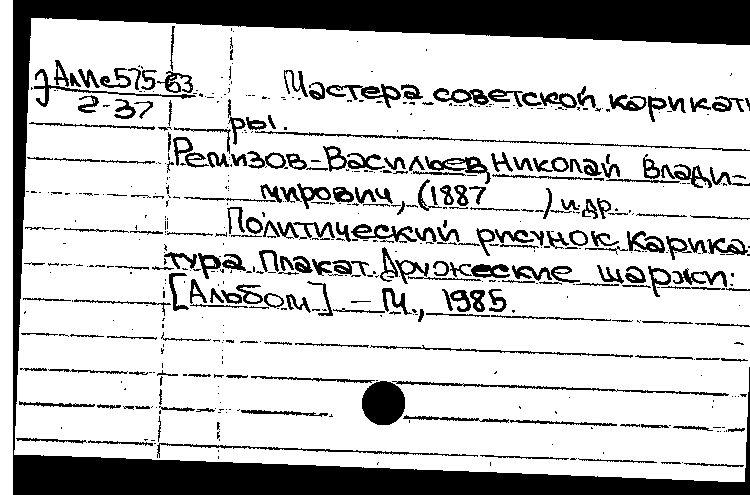 АлИс575-63
2-37
Мастера советской карикату
ры.
Ремизов-Васильев, Николай Влади-
мирович, (1887 ) и др.
Политический рисунок. Карика-
тура. Плакат. Дружеские шаржи:
[Альбом] – М., 1985.